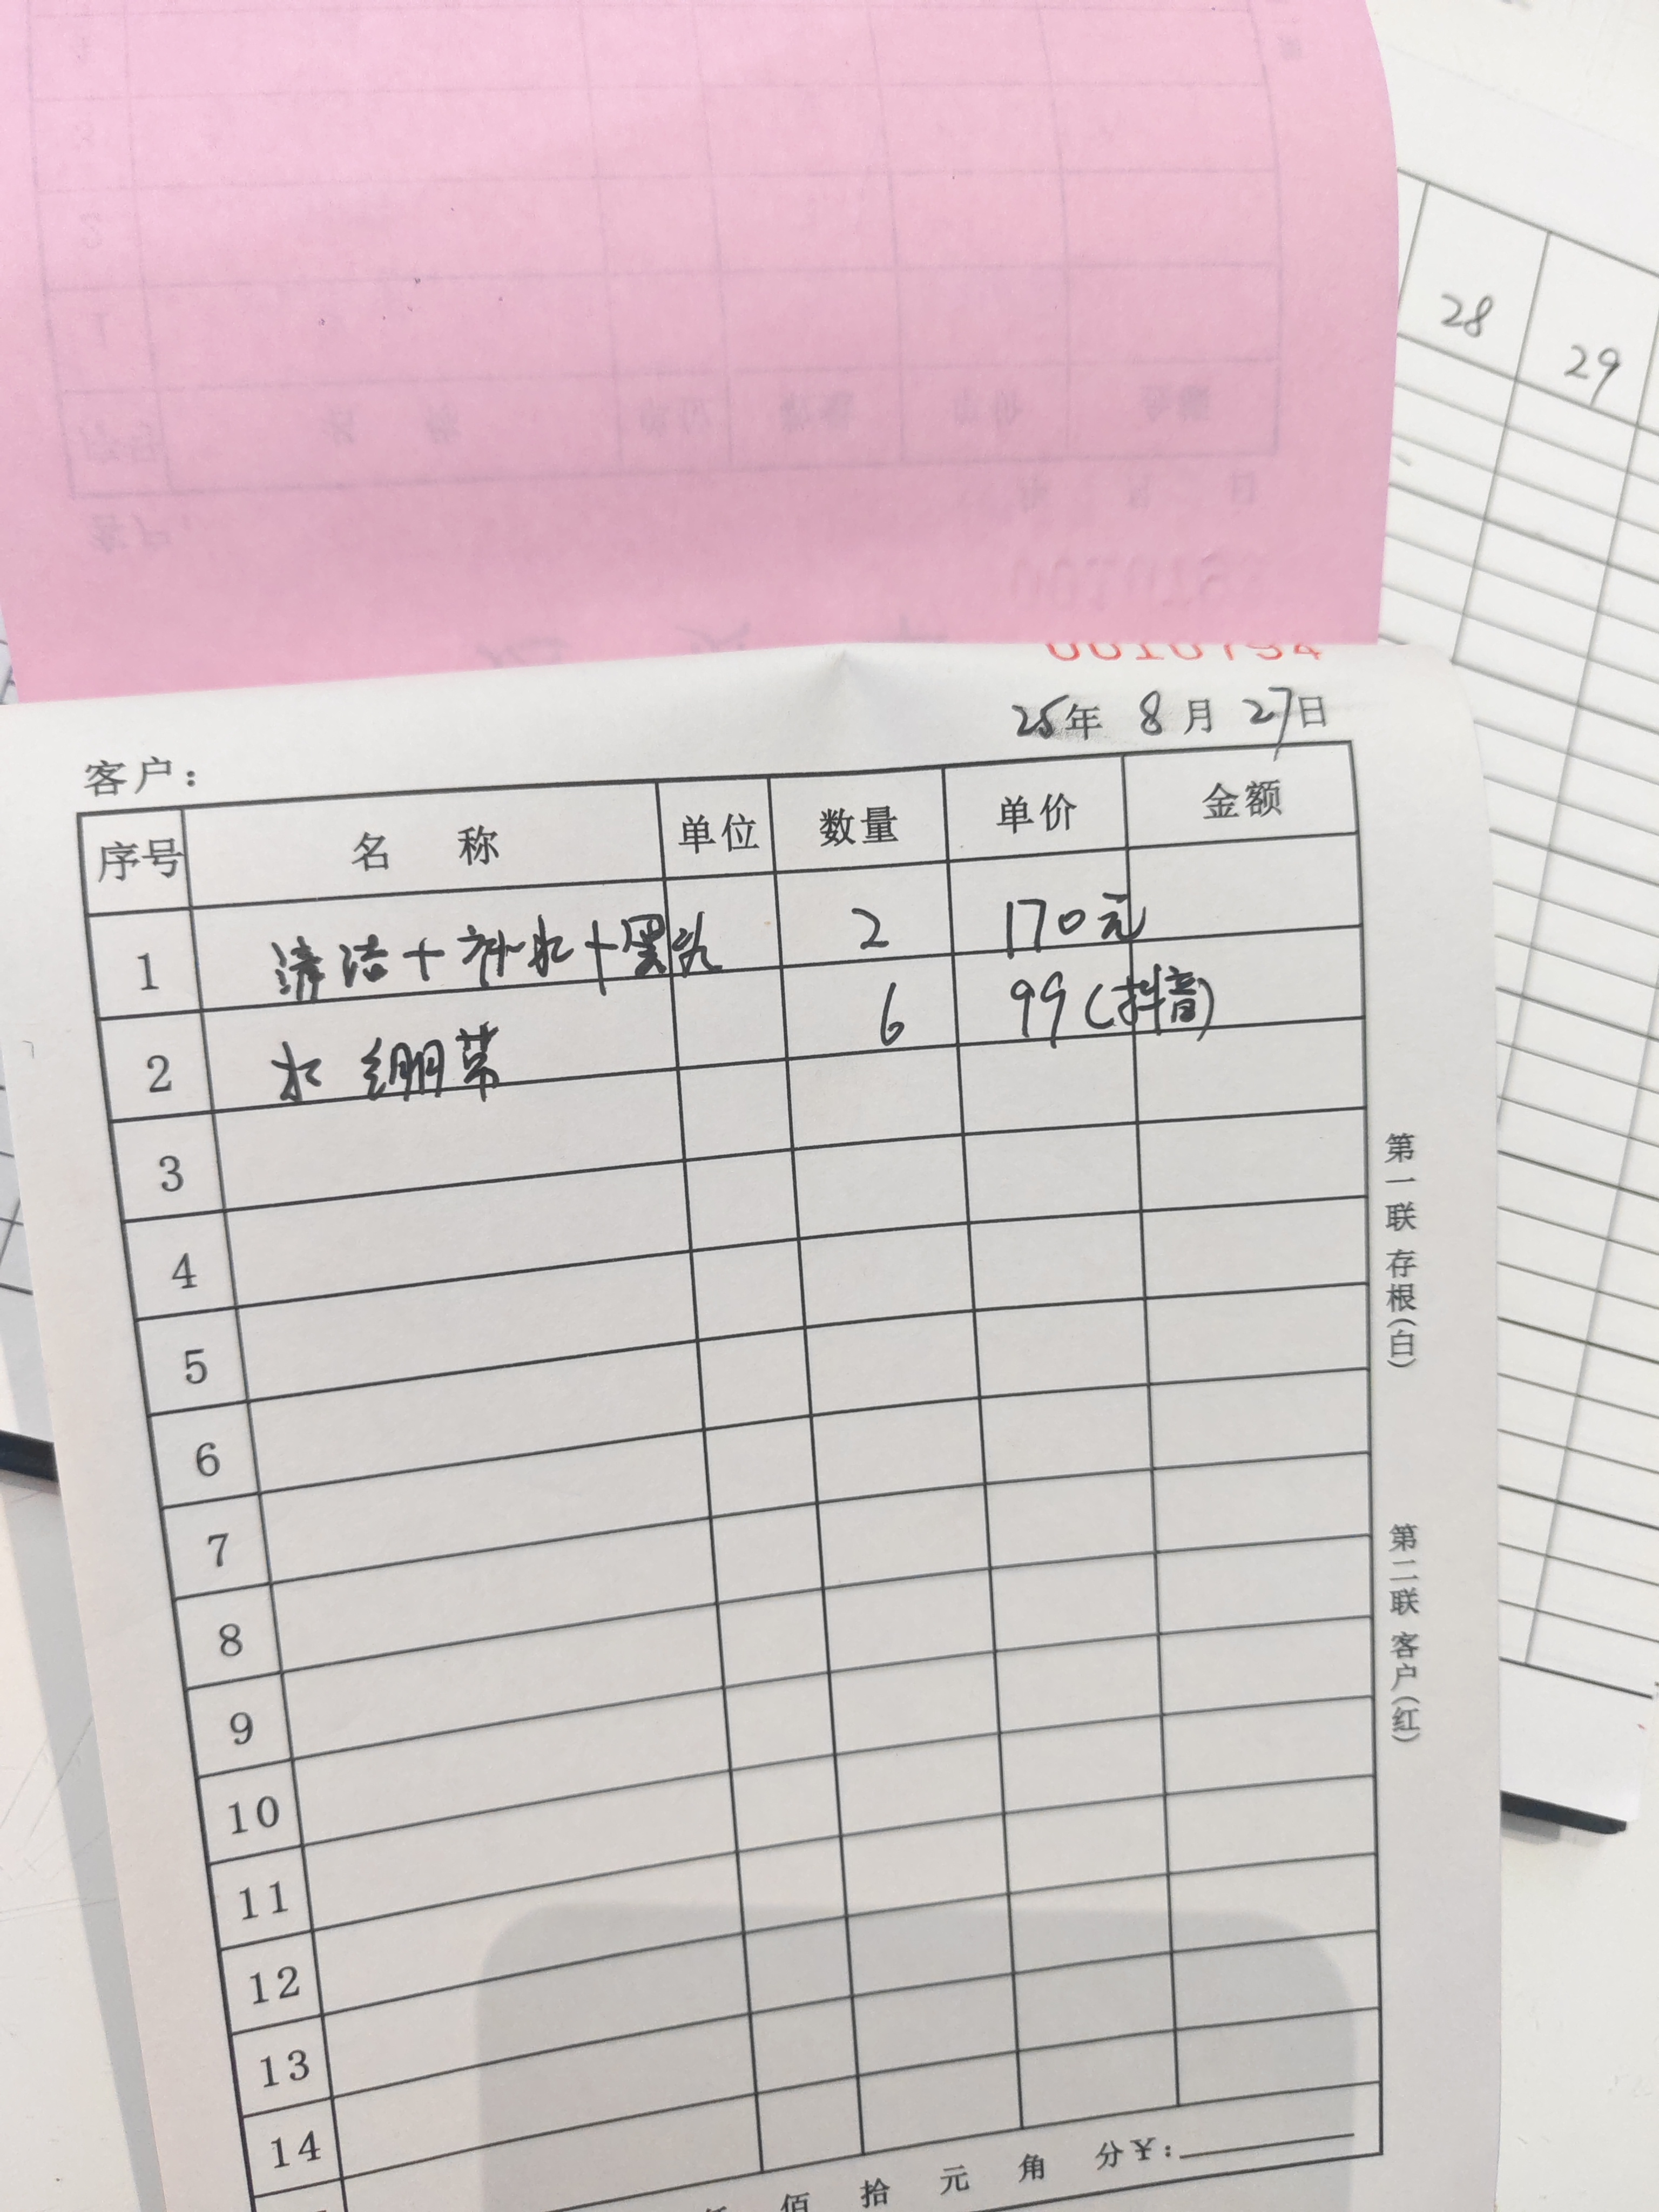 28
29
25年 8月 27日
客户:
序号 名 称 单位 数量 单价 金额
1 清洁+补水+黑头 2 170元
2 水 绷带 6 99(抖音)
3
4
5
6
7
8
9
10
11
12
13
14
佰 拾 元 角 分¥:
第一联 存根(白)
第二联 客户(红)